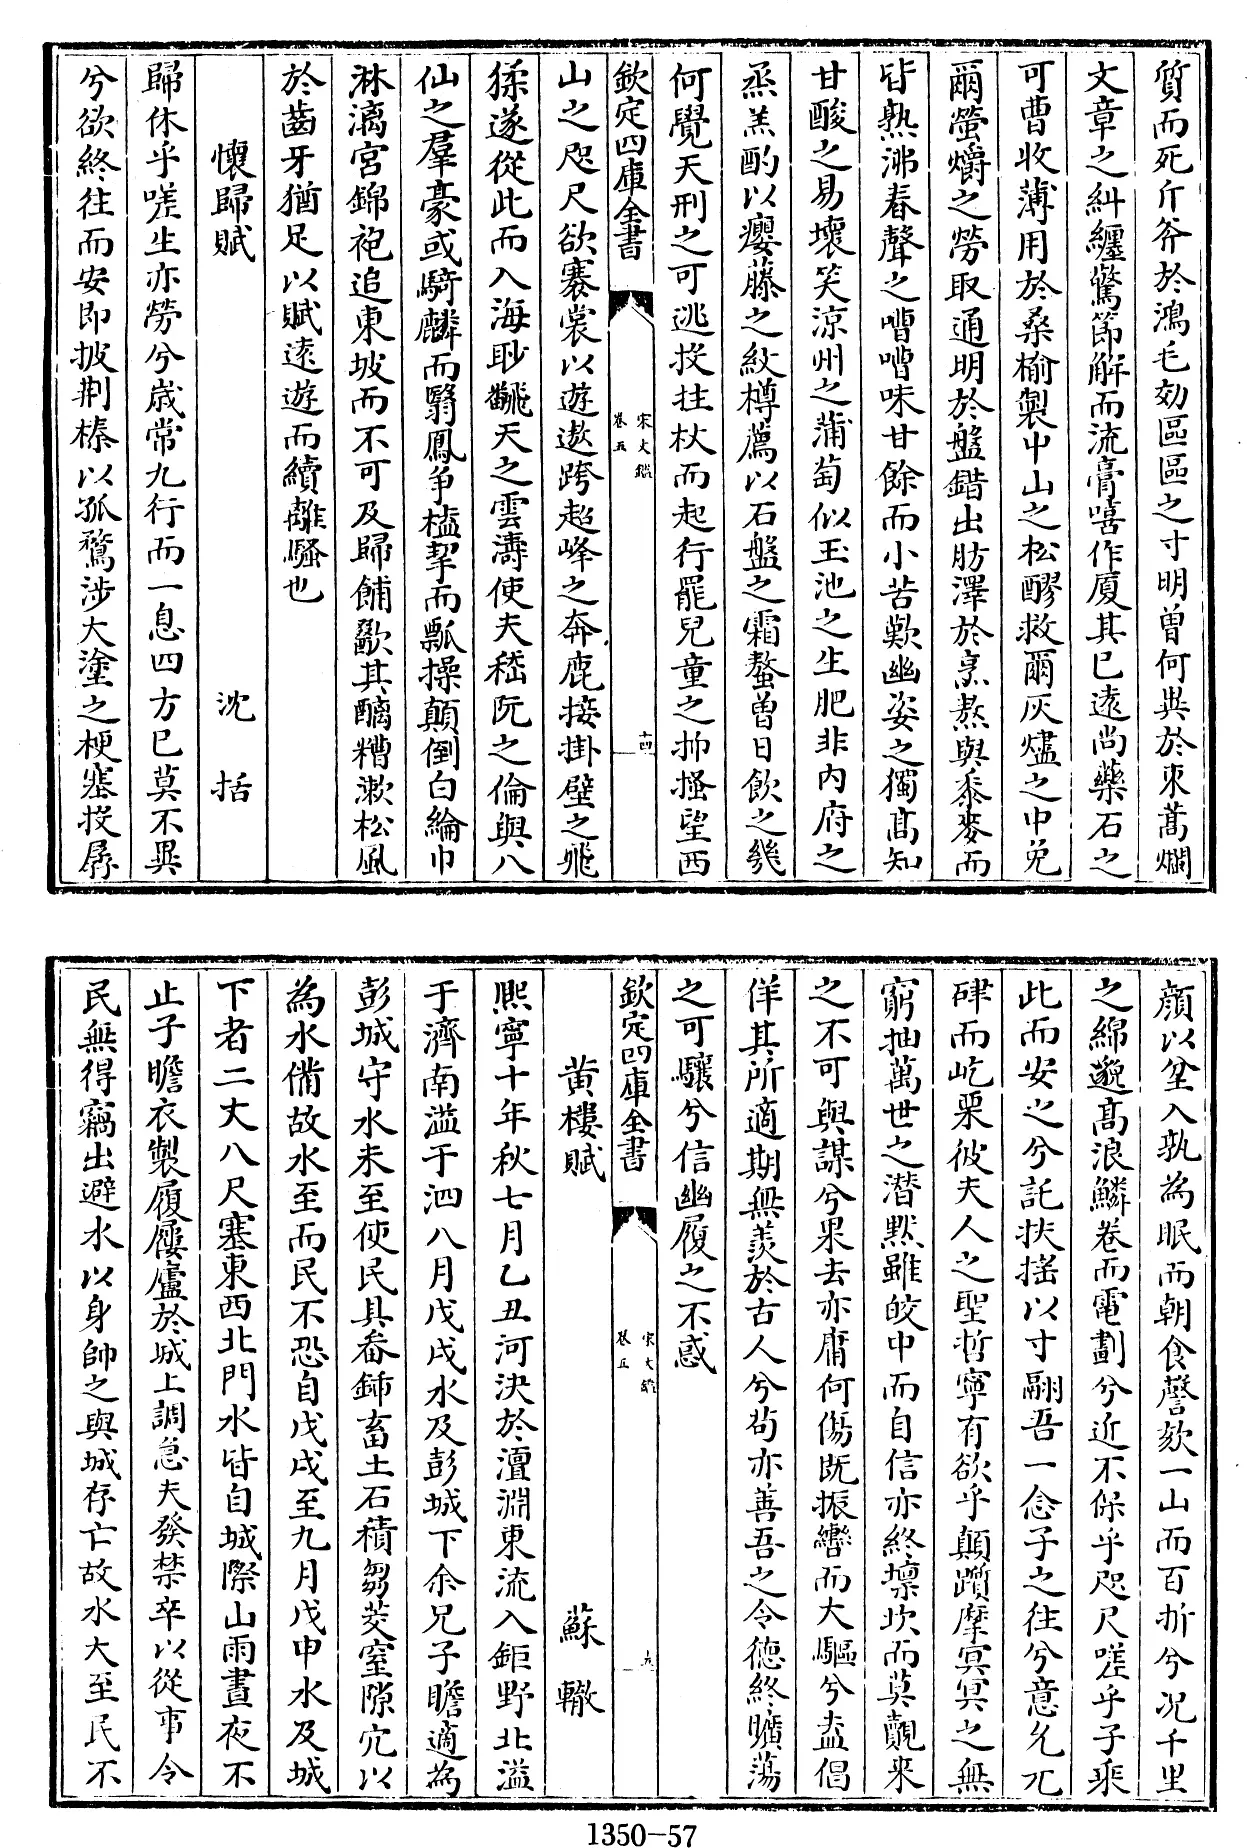 質而死斤斧於鴻毛效區區之寸明曽何異於束蒿爛
文章之糾纒驚節解而流膏嘻作厦其已逺尚藥石之
可曹收薄用於桑榆製中山之松醪救爾灰燼之中免
爾螢爝之勞取通明於盤錯出肪澤於烹熬與黍麥而
皆熟沸舂聲之嘈嘈味甘餘而小苦歎幽姿之獨髙知
甘酸之易壞笑涼州之蒲萄似玉池之生肥非内府之
烝羔酌以癭藤之紋樽薦以石盤之霜螯曽日飲之幾
何覺天刑之可逃投拄杖而起行罷兒童之抑搔望西
欽定四庫全書
宋文鑑
卷五
十四
山之咫尺欲褰裳以遊遨跨超峰之奔鹿接掛壁之飛
猱遂從此而入海眇飜天之雲濤使夫嵇阮之倫與八
仙之羣豪或騎麟而翳鳳爭榼挈而瓢操顛倒白綸巾
淋漓宮錦袍追東坡而不可及歸餔歠其醨糟漱松風
於齒牙猶足以賦逺遊而續離騷也
懷歸賦 沈括
歸休乎嗟生亦勞兮歳常九行而一息四方已莫不異
兮欲終往而安即披荆榛以孤騖涉大塗之梗塞投孱
顔以坌入孰為眠而朝食謦欬一山而百折兮况千里
之綿邈髙浪鱗卷而電劃兮近不保乎咫尺嗟乎子乘
此而安之兮託扶揺以寸翮吾一念子之往兮意乆兀
硉而屹栗彼夫人之聖哲寧有欲乎顛躓摩㝠㝠之無
窮抽萬世之潛黙雖皎中而自信亦終壈坎而莫覿來
之不可與謀兮果去亦庸何傷既振轡而大驅兮盍倡
佯其所適期無羡於古人兮茍亦善吾之令德終曠蕩
之可驤兮信幽履之不惑
欽定四庫全書
宋文鑑
卷五
黄樓賦 蘇轍
熙寧十年秋七月乙丑河決於澶淵東流入鉅野北溢
于濟南溢于泗八月戊戌水及彭城下余兄子瞻適為
彭城守水未至使民具畚鍤畜土石積芻茭窒隙穴以
為水備故水至而民不恐自戊戌至九月戊申水及城
下者二丈八尺塞東西北門水皆自城際山雨晝夜不
止子瞻衣製履屨廬於城上調急夫發禁卒以從事令
民無得竊出避水以身帥之與城存亡故水大至民不
1350-57